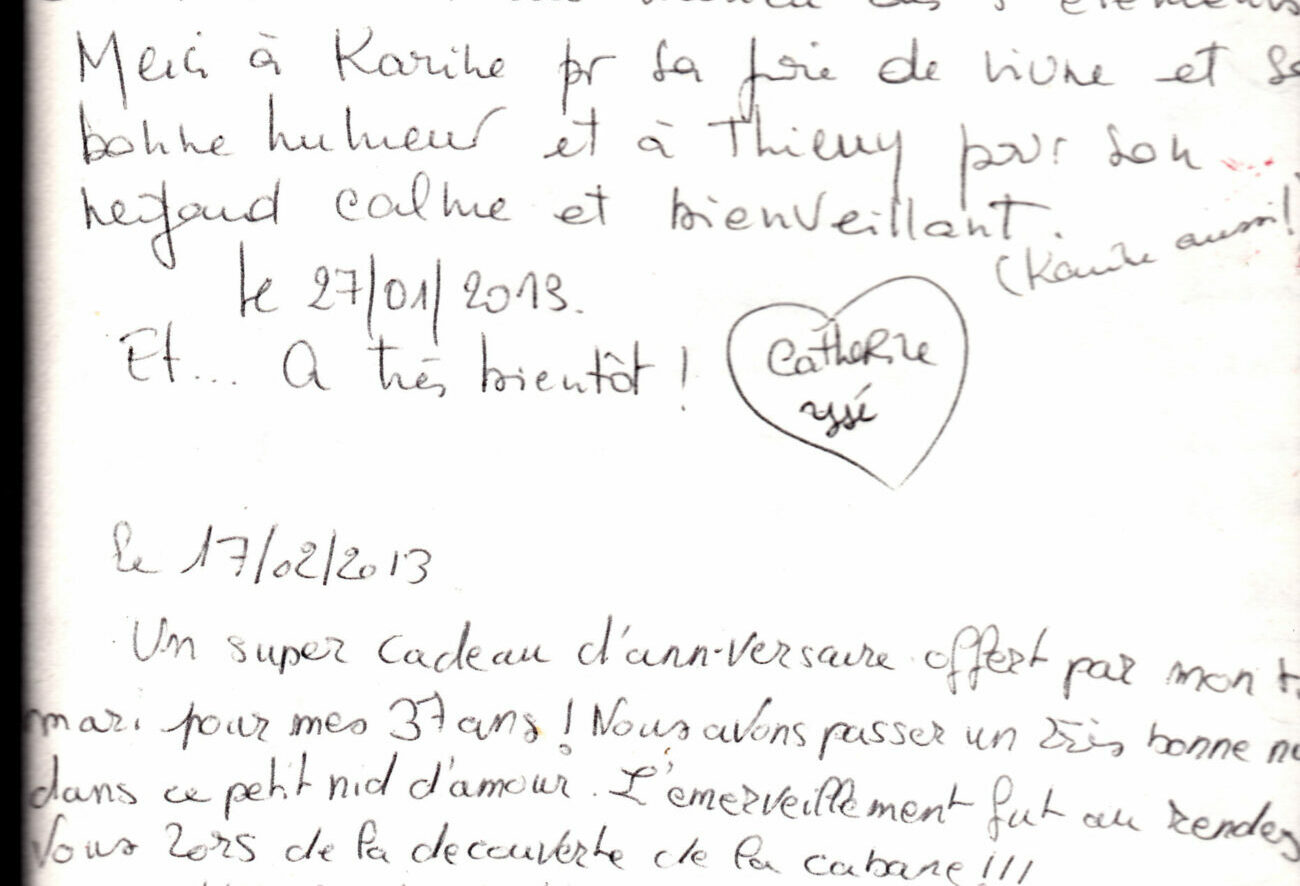 éléments
Merci à Karine pr sa joie de vivre et sa
bonne humeur et à Thierry pour son ...
regard calme et bienveillant.
(Karine aussi!
le 27/01/2013.
Et... A très bientôt !
Catherine
ysé
le 17/02/2013
Un super cadeau d'anniversaire offert par mon
mari pour mes 37 ans ! Nous avons passer un très bonne
dans ce petit nid d'amour. L'émerveillement fut au rendez
Vous lors de la decouverte de la cabane !!!